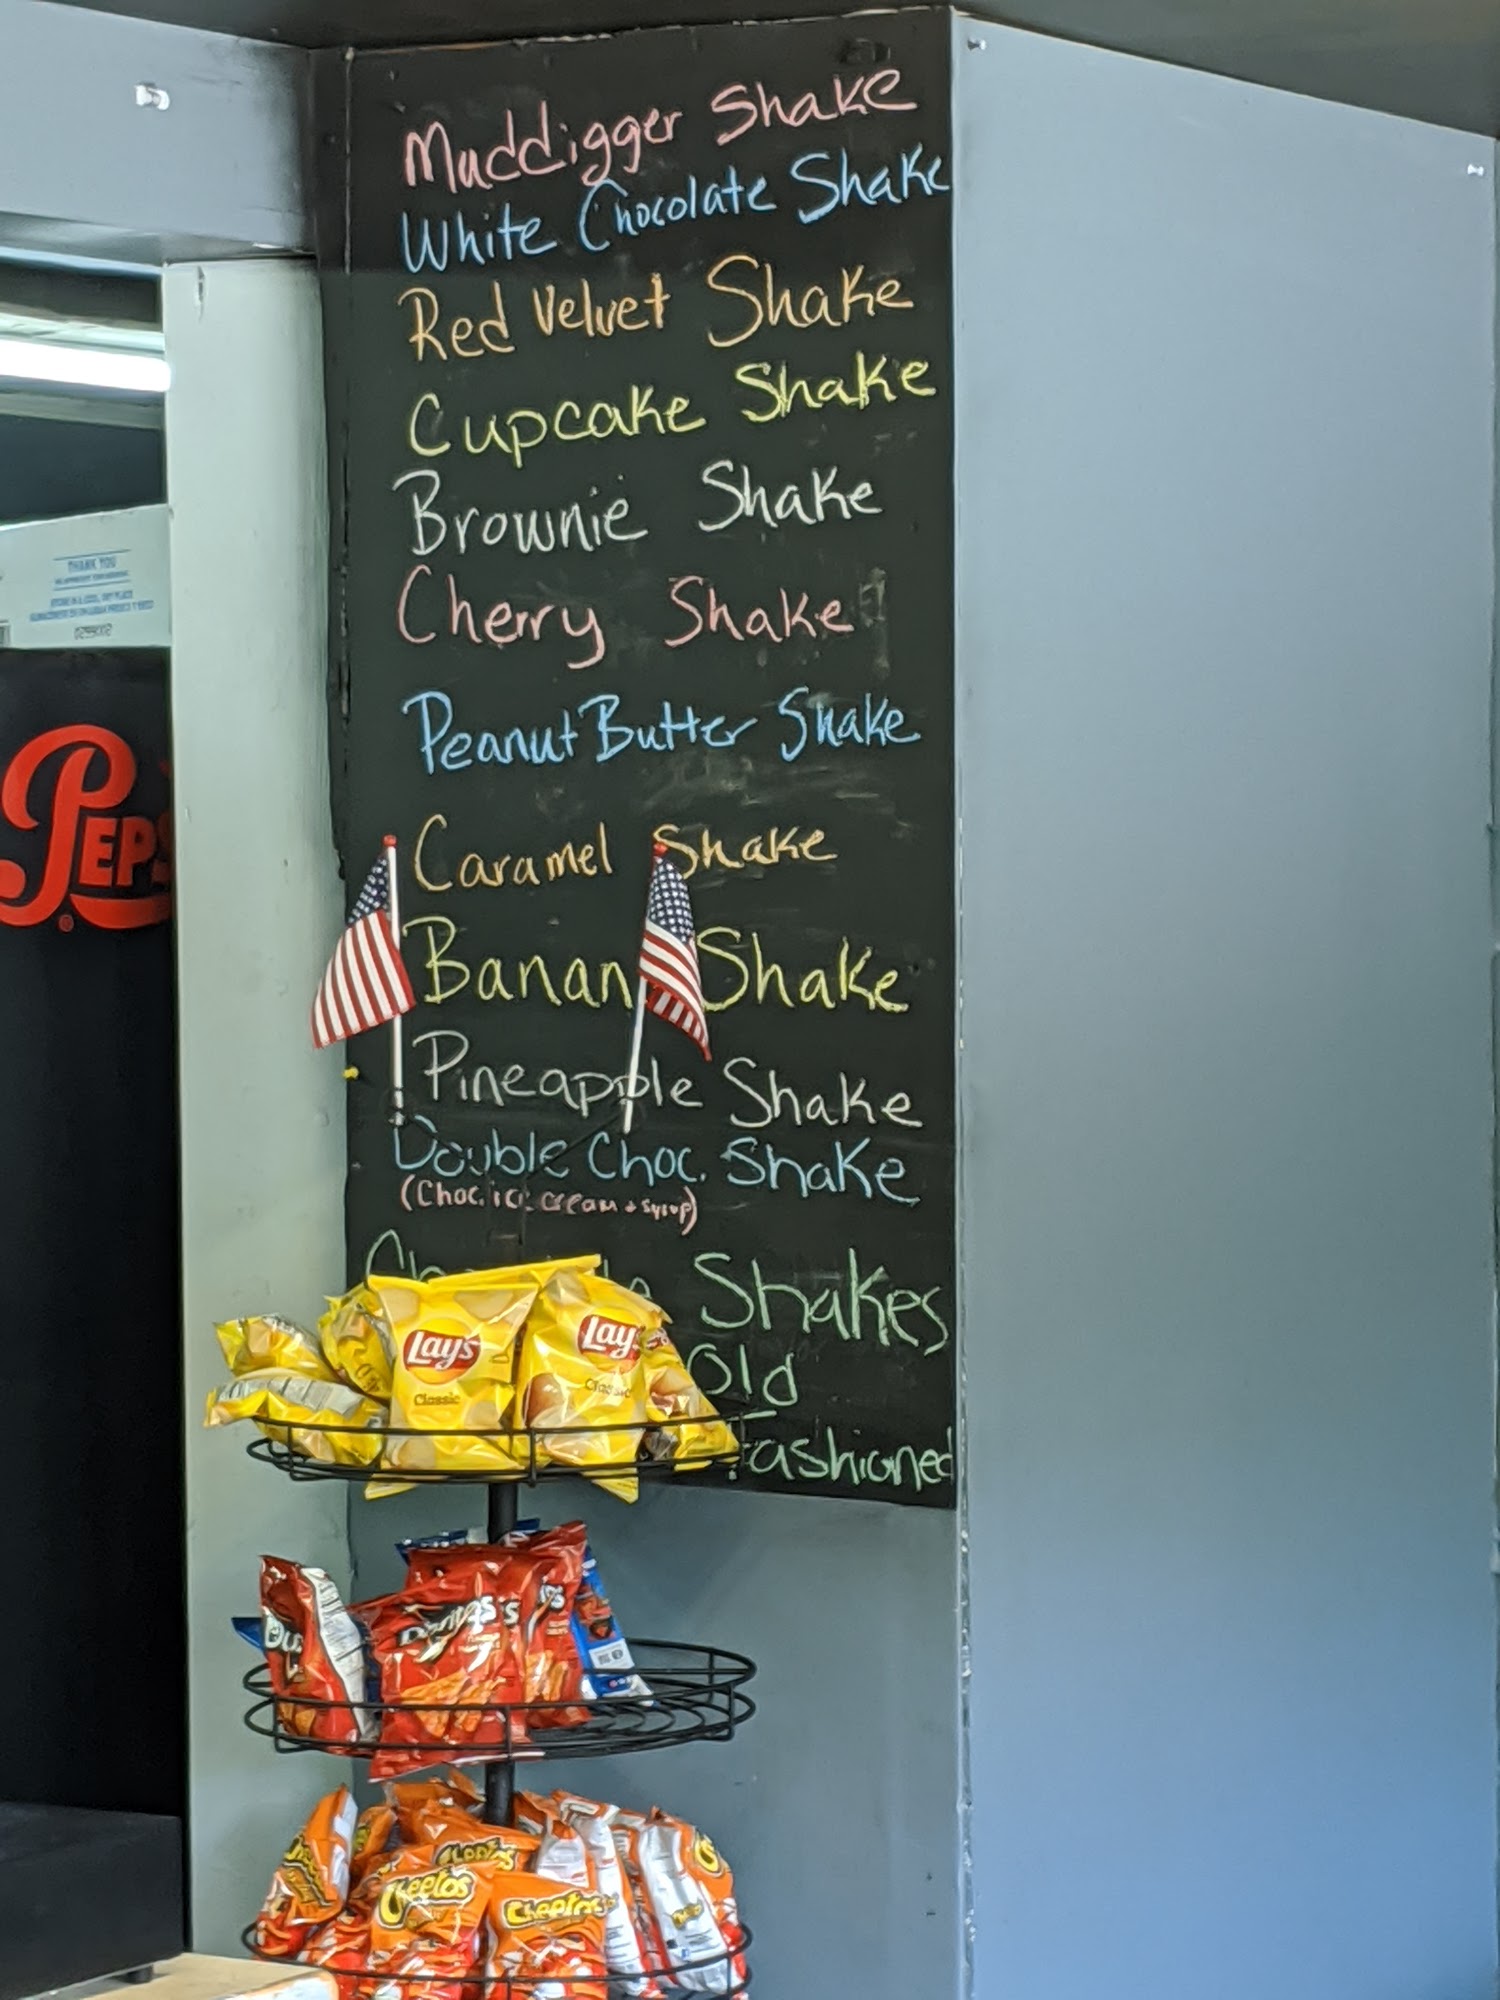 Muddigger Shake
White Chocolate Shake
Red Velvet Shake
Cupcake Shake
Brownie Shake
Cherry Shake
Peanut Butter Shake
Caramel Shake
Banan Shake
Pineapple Shake
Double Choc. Shake
(Choc. ice cream + syrup)
Shakes
Old
Fashioned
THANK YOU
PEPS
Lay's
Classic
Lay's
Classic
Doritos
Cheetos
Cheetos
Cheetos